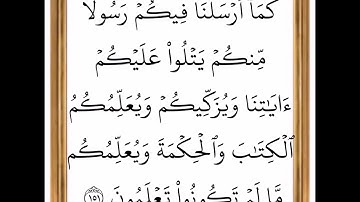 كَمَآ أَرْسَلْنَا فِيكُمْ رَسُولًا
مِّنكُمْ يَتْلُوا۟ عَلَيْكُمْ
ءَايَـٰتِنَا وَيُزَكِّيكُمْ وَيُعَلِّمُكُمُ
ٱلْكِتَـٰبَ وَٱلْحِكْمَةَ وَيُعَلِّمُكُم
مَّا لَمْ تَكُونُوا۟ تَعْلَمُونَ ١٥١